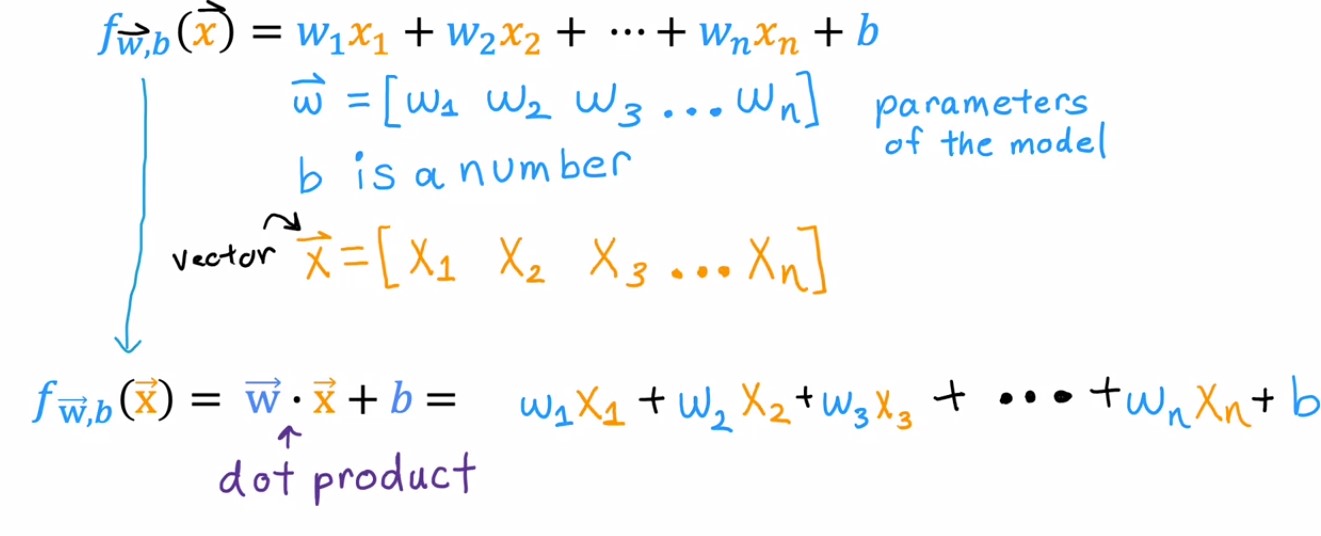 f_{\vec{w},b}(\vec{x}) = w_1x_1 + w_2x_2 + ⋯ + w_nx_n + b
\vec{w} = [w_1 w_2 w_3 ... w_n] parameters
of the model
b is a number
vector \vec{x} = [x_1 x_2 x_3 ... x_n]
f_{\vec{w},b}(\vec{x}) = \vec{w} · \vec{x} + b = w_1x_1 + w_2x_2 + w_3x_3 + ⋯ + w_nx_n + b
dot product